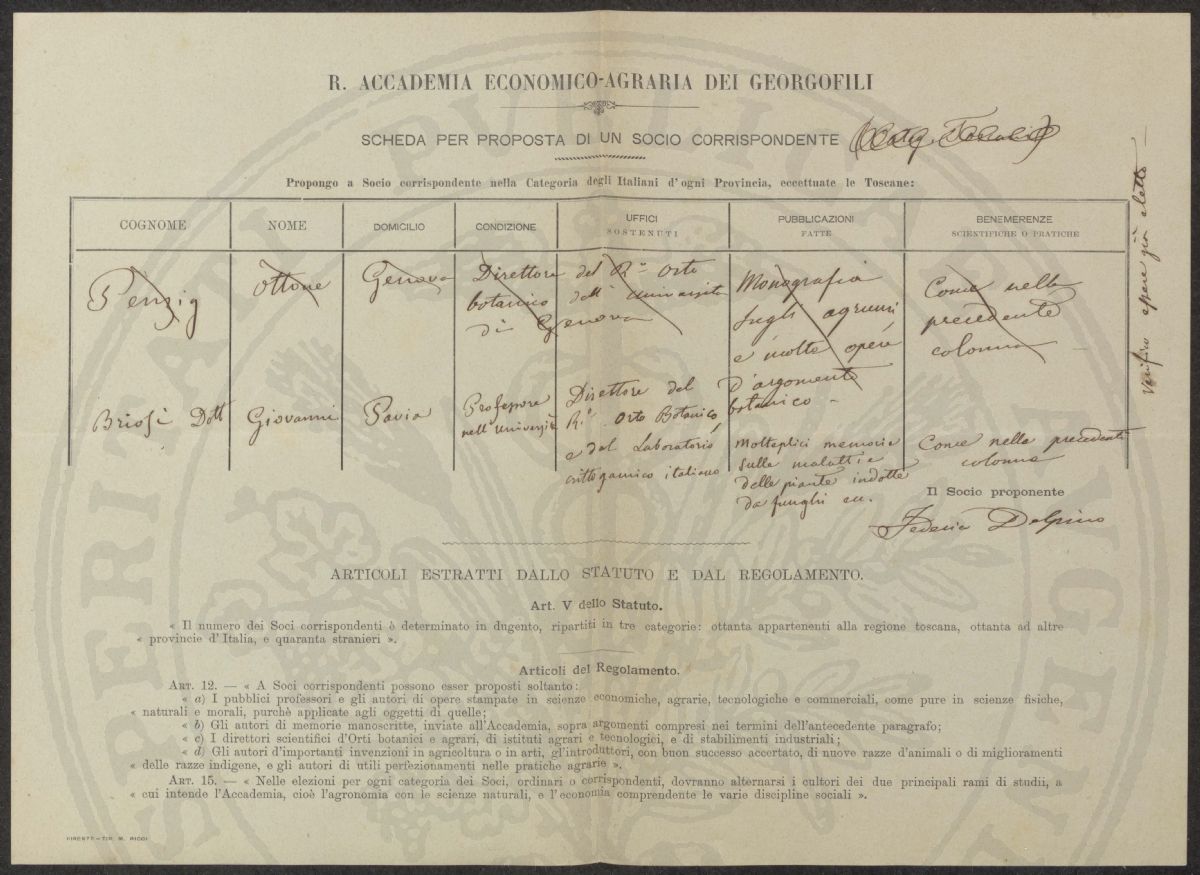 R. ACCADEMIA ECONOMICO-AGRARIA DEI GEORGOFILI
SCHEDA PER PROPOSTA DI UN SOCIO CORRISPONDENTE
Propongo a Socio corrispondente nella Categoria degli Italiani d'ogni Provincia, eccettuate le Toscane:
COGNOME
NOME
DOMICILIO
CONDIZIONE
UFFICI
SOSTENUTI
PUBBLICAZIONI
FATTE
BENEMERENZE
SCIENTIFICHE O PRATICHE
Penzig
Ottone
Genova
Direttore del R.º Orto
botanico dell' Università
di Genova
Monografia
sugli agrumi
e molte opere
d'argomento
botanico -
Come nella
precedente
colonna
Briosi Dott
Giovanni
Pavia
Professore
nell' Università
Direttore del
R.º Orto Botanico
e del Laboratorio
crittogamico italiano
Molteplici memorie
sulle malattie
delle piante indotte
da funghi ecc.
Come nella precedente
colonna
Verifico essere già eletto —
Il Socio proponente
Federico Delpino
ARTICOLI ESTRATTI DALLO STATUTO E DAL REGOLAMENTO.
Art. V dello Statuto.
« Il numero dei Soci corrispondenti è determinato in dugento, ripartiti in tre categorie: ottanta appartenenti alla regione toscana, ottanta ad altre
« provincie d'Italia, e quaranta stranieri ».
Articoli del Regolamento.
ART. 12. — « A Soci corrispondenti possono esser proposti soltanto:
« a) I pubblici professori e gli autori di opere stampate in scienze economiche, agrarie, tecnologiche e commerciali, come pure in scienze fisiche,
« naturali e morali, purchè applicate agli oggetti di quelle;
« b) Gli autori di memorie manoscritte, inviate all'Accademia, sopra argomenti compresi nei termini dell'antecedente paragrafo;
« c) I direttori scientifici d'Orti botanici e agrari, di istituti agrari e tecnologici, e di stabilimenti industriali;
« d) Gli autori d'importanti invenzioni in agricoltura o in arti, gl'introduttori, con buon successo accertato, di nuove razze d'animali o di miglioramenti
« delle razze indigene, e gli autori di utili perfezionamenti nelle pratiche agrarie ».
ART. 15. — « Nelle elezioni per ogni categoria dei Soci, ordinari o corrispondenti, dovranno alternarsi i cultori dei due principali rami di studii, a
« cui intende l'Accademia, cioè l'agronomia con le scienze naturali, e l'economia comprendente le varie discipline sociali ».
FIRENZE—TIP. M. RICCI